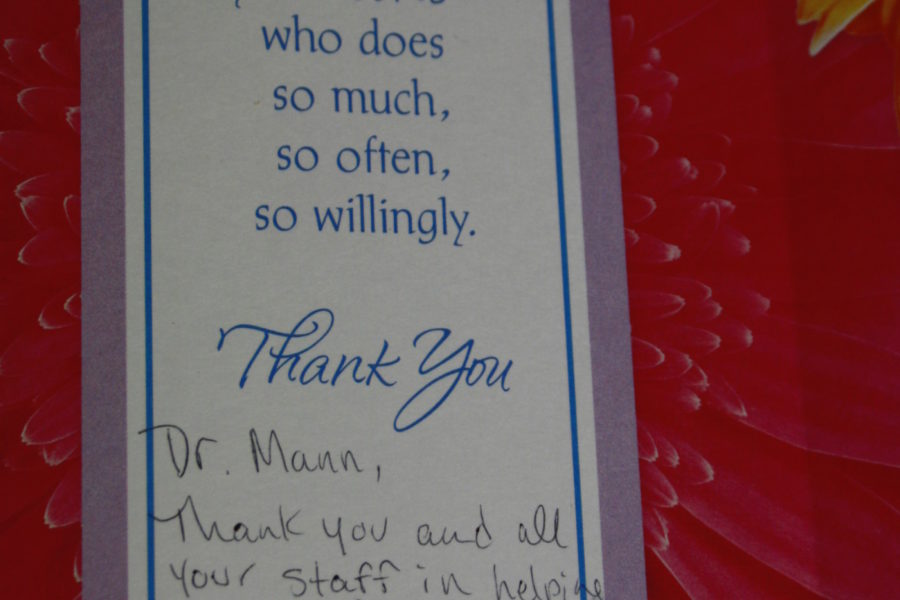 who does
so much,
so often,
so willingly.
Thank You
Dr. Mann,
Thank you and all
your staff in helping